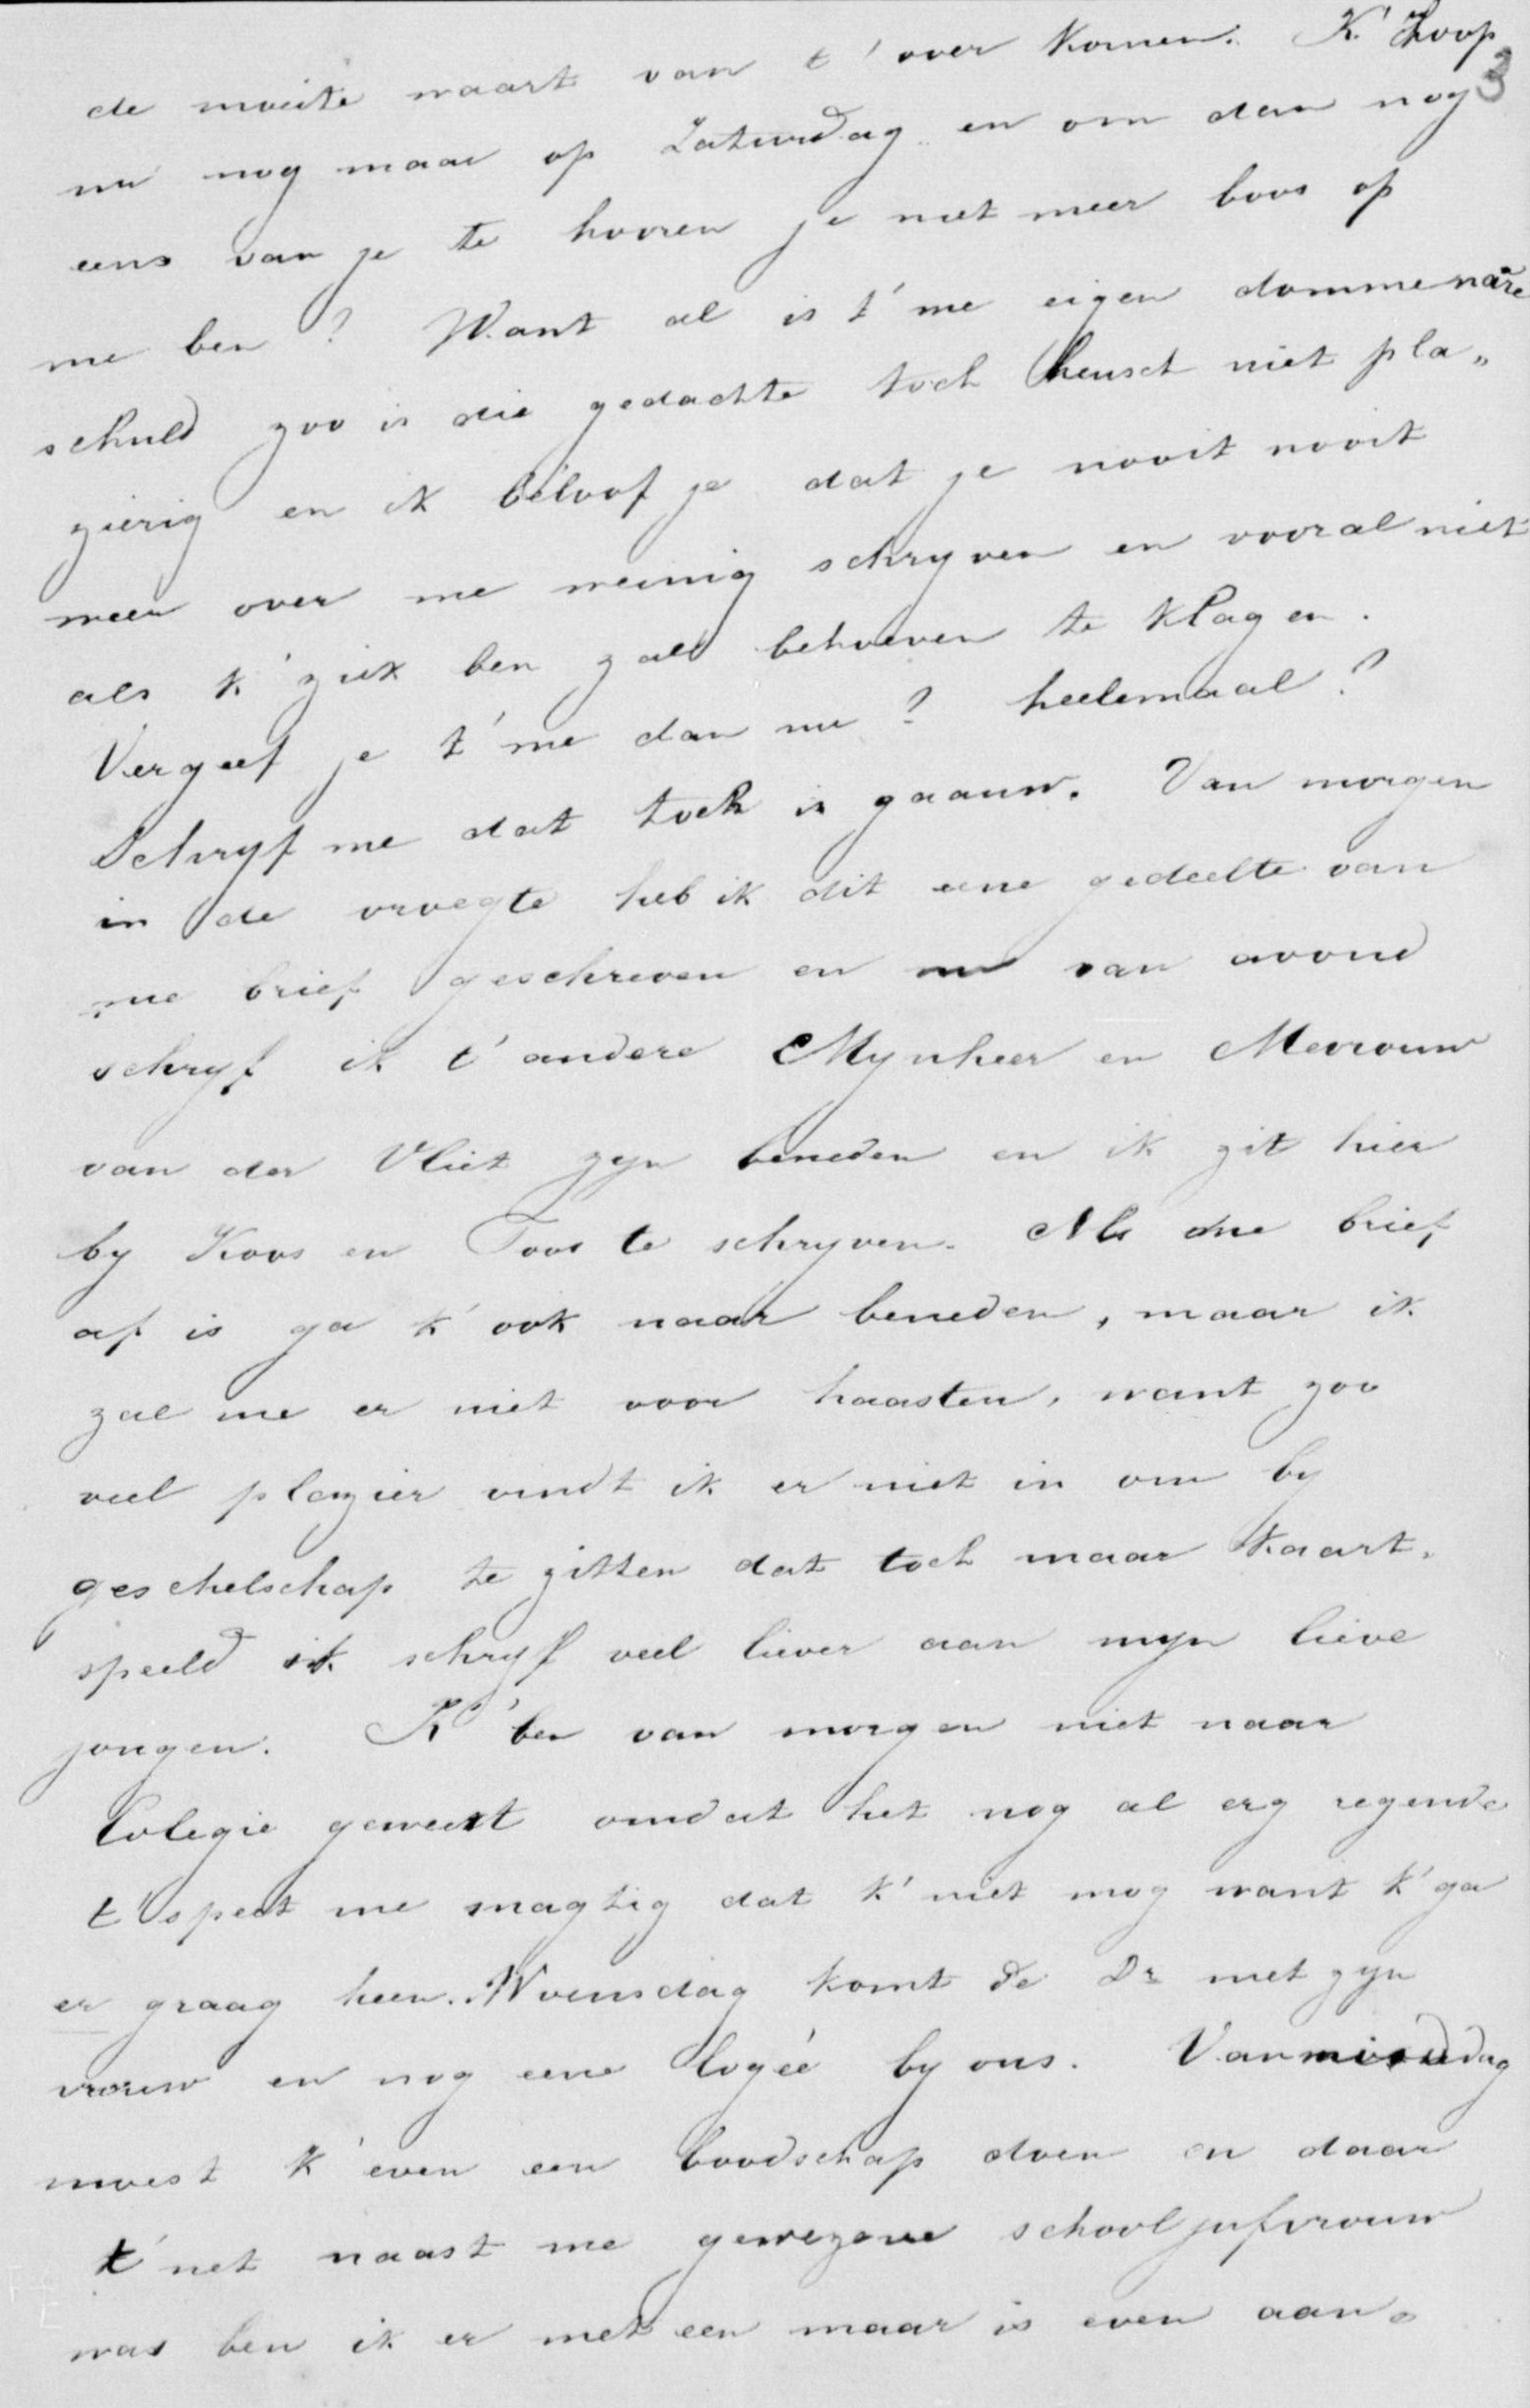 de moeite waart van t' over komen. K' Hoop
3
nu nog maar op Zaturdag en om dan nog
eens van je te hooren je niet meer boos op
me ben? Want al is t' me eigen domme nare
schuld zoo is die gedachte toch heusch niet pla„
zierig en ik beloof je dat je nooit nooit
meer over me weinig schryven en vooral niet
als k' ziek ben zal behoeven te klagen.
Vergeef je t' me dan nu? heelemaal?
Schryf me dat toch is gaauw. Van morgen
in de vroegte heb ik dit eene gedeelte van
me brief geschreven en nu van avond
schryf ik t' andere Mynheer en Mevrouw
van der Vliet zyn beneden en ik zit hier
by Koos en Toos te schryven. Als me brief
af is ga k' ook naar beneden, maar ik
zal me er niet voor haasten, want zoo
veel plezier vindt ik er niet in om by
geschelschap te zitten dat toch maar kaart„
speeld ik schryf veel liever aan myn lieve
jongen. K' ben van morgen niet naar
Colegie geweest omdat het nog al erg regende
t' speet me magtig dat k' niet mog want k' ga
er graag heen. Woensdag komt de Dr met zyn
vrouw en nog eene logée by ons. Van middag
moest k' even een boodschap doen en daar
t' net naast me gewezene schooljufvrouw
was ben ik er met een maar is even aan„